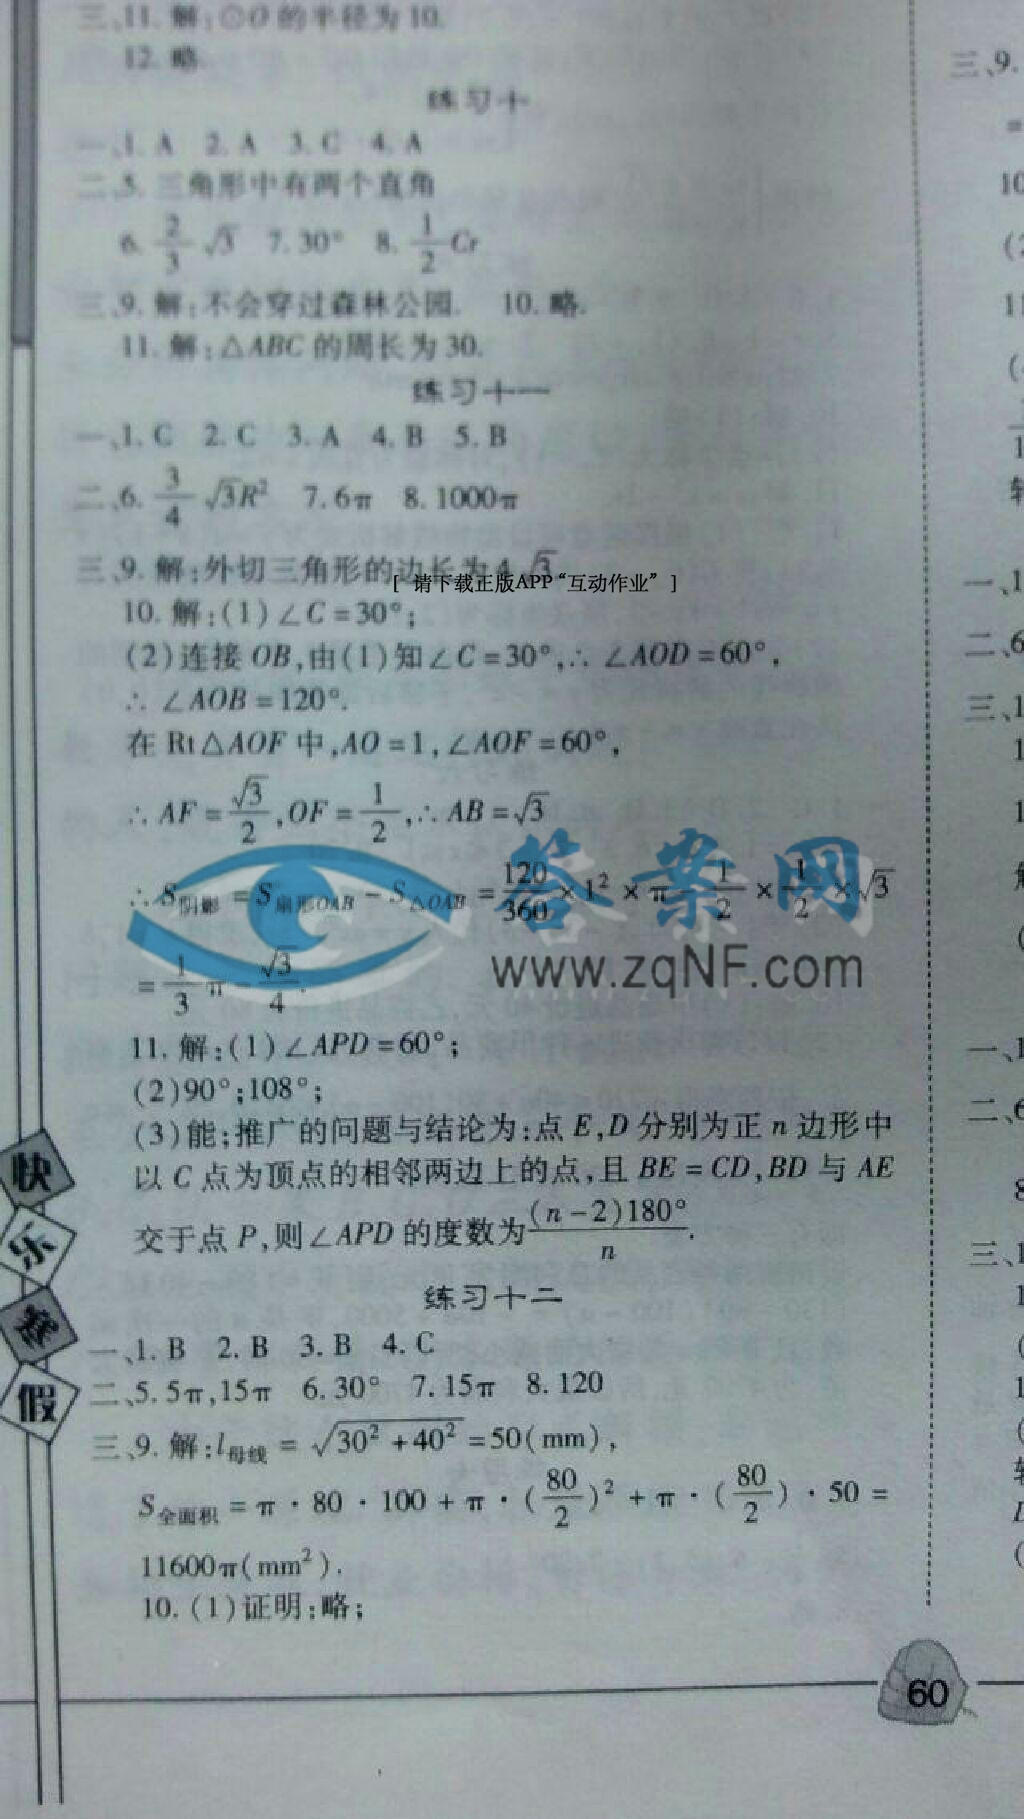 三、11. 解:⊙O 的半径为 10.
12. 略.
练习十
一、1. A 2. A 3. C 4. A
二、5. 三角形中有两个直角
6. 2/3 √3 7. 30° 8. 1/2 Cr
三、9. 解:不会穿过森林公园. 10. 略.
11. 解:△ABC 的周长为 30.
练习十一
一、1. C 2. C 3. A 4. B 5. B
二、6. 3/4 √3R² 7. 6π 8. 1000π
三、9. 解:外切三角形的边长为 4√3
[ 请下载正版APP“互动作业” ]
10. 解:(1)∠C=30°;
(2)连接 OB,由(1)知∠C=30°,∴ ∠AOD=60°,
∴ ∠AOB=120°.
在 Rt△AOF 中,AO=1,∠AOF=60°,
∴ AF=√3/2,OF=1/2,∴ AB=√3
∴ S阴影=S扇形OAB-S△OAB=120/360×1²×π-1/2×1/2×√3
=1/3π-√3/4.
答案网
www.zqNF.com
11. 解:(1)∠APD=60°;
(2)90°;108°;
(3)能;推广的问题与结论为:点 E,D 分别为正 n 边形中
以 C 点为顶点的相邻两边上的点,且 BE=CD,BD 与 AE
交于点 P,则∠APD 的度数为(n-2)180°/n.
练习十二
一、1. B 2. B 3. B 4. C
二、5. 5π,15π 6. 30° 7. 15π 8. 120
三、9. 解:l母线=√(30²+40²)=50(mm),
S全面积=π·80·100+π·(80/2)²+π·(80/2)·50=
11600π(mm²).
10. (1)证明:略;
快
乐
假
60
三、9.
=
10
11
一、1
二、6
三、1
1
一、1
二、6
8
三、1